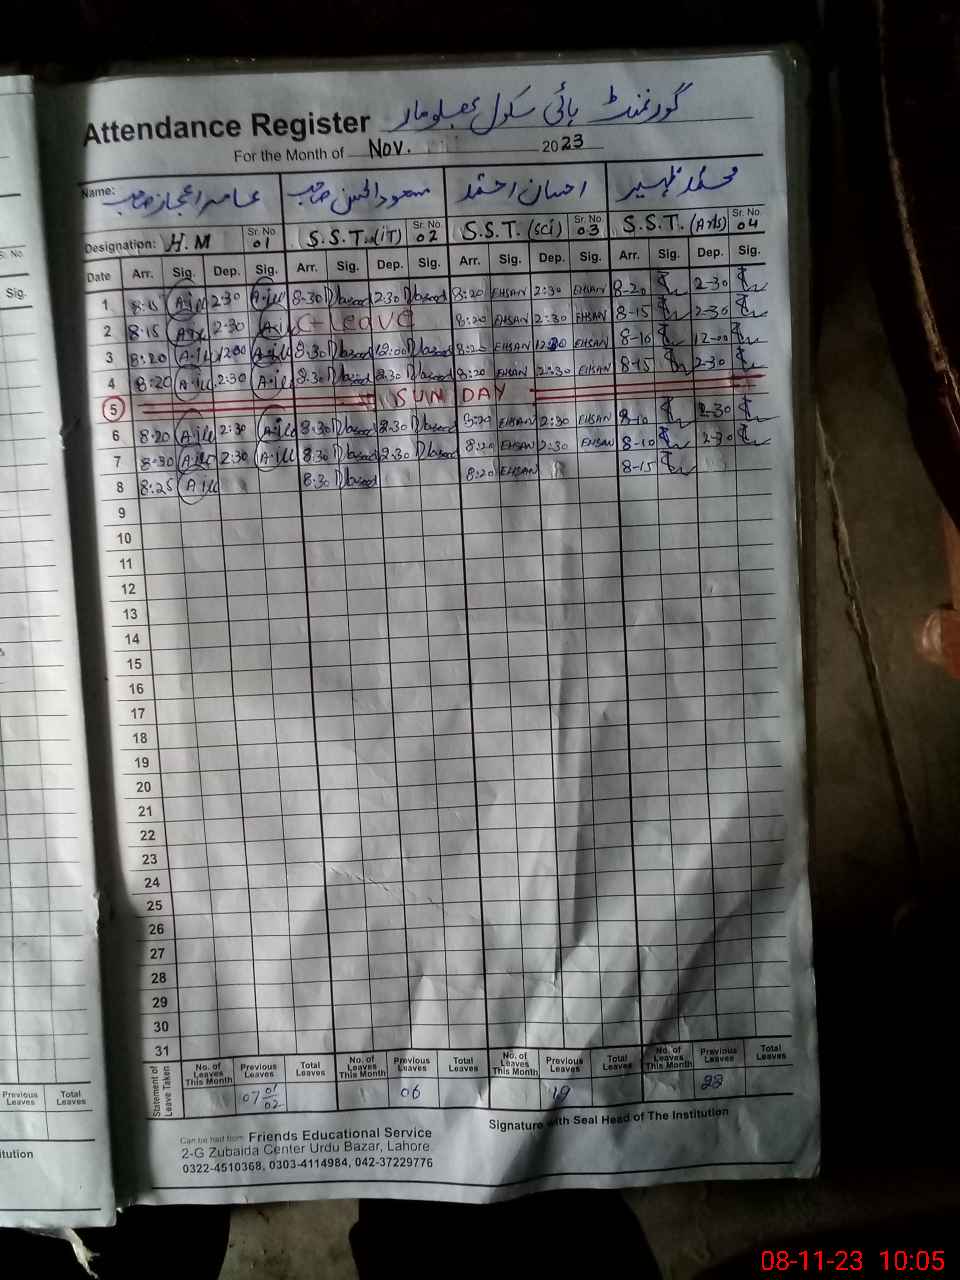 Attendance Register گورنمنٹ ہائی سکول
For the Month of Nov. 2023
Name: عامر اعجاز صاحب مسعود الحسن صاحب احسان احمد محمد ظہیر
Designation: H.M Sr. No. 01 S.S.T. (IT) Sr. No. 02 S.S.T. (Sci) Sr. No. 03 S.S.T. (Arts) Sr. No. 04
Date Arr. Sig. Dep. Sig. Arr. Sig. Dep. Sig. Arr. Sig. Dep. Sig. Arr. Sig. Dep. Sig.
1 8:15 2:30 8:30 2:30 8:20 EHSAN 2:30 EHSAN 8-20 2-30
2 8:15 2:30 C-Leave 8:20 EHSAN 2:30 EHSAN 8-15 2-30
3 8:20 12:00 8:30 12:00 8:20 EHSAN EHSAN 8-10 12-00
4 8:20 2:30 8:30 2:30 8:20 EHSAN 2:30 EHSAN 8-15 2-30
5 SUN DAY
6 8:20 2:30 8:30 2:30 8:20 EHSAN 2:30 EHSAN 8-10 2-30
7 8:30 2:30 8:30 2:30 8:20 EHSAN 2:30 EHSAN 8-10 2-30
8 8:25 8:30 8:20 EHSAN 8-15
9
10
11
12
13
14
15
16
17
18
19
20
21
22
23
24
25
26
27
28
29
30
31
Statement of Leave Taken No. of Leaves This Month Previous Leaves Total Leaves No. of Leaves This Month Previous Leaves Total Leaves No. of Leaves This Month Previous Leaves Total Leaves No. of Leaves This Month Previous Leaves Total Leaves
07 01/02 06 19
Can be had from Friends Educational Service
2-G Zubaida Center Urdu Bazar, Lahore
0322-4510368, 0303-4114984, 042-37229776
Signature with Seal Head of The Institution
Sr. No.
Sig.
Previous Leaves Total Leaves
08-11-23 10:05